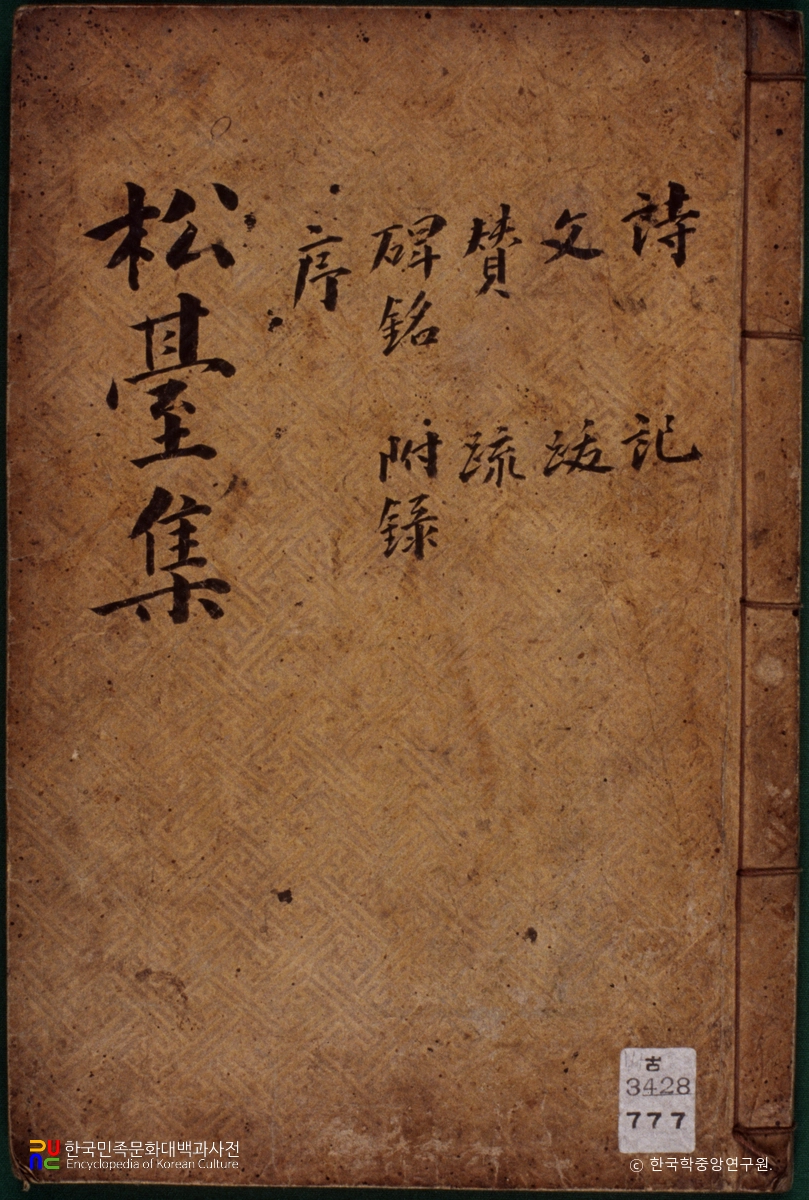 詩 記
文 跋
賛 疏
碑銘 附録
序
松臺集
古
3428
777
한국민족문화대백과사전
Encyclopedia of Korean Culture
ⓒ 한국학중앙연구원.